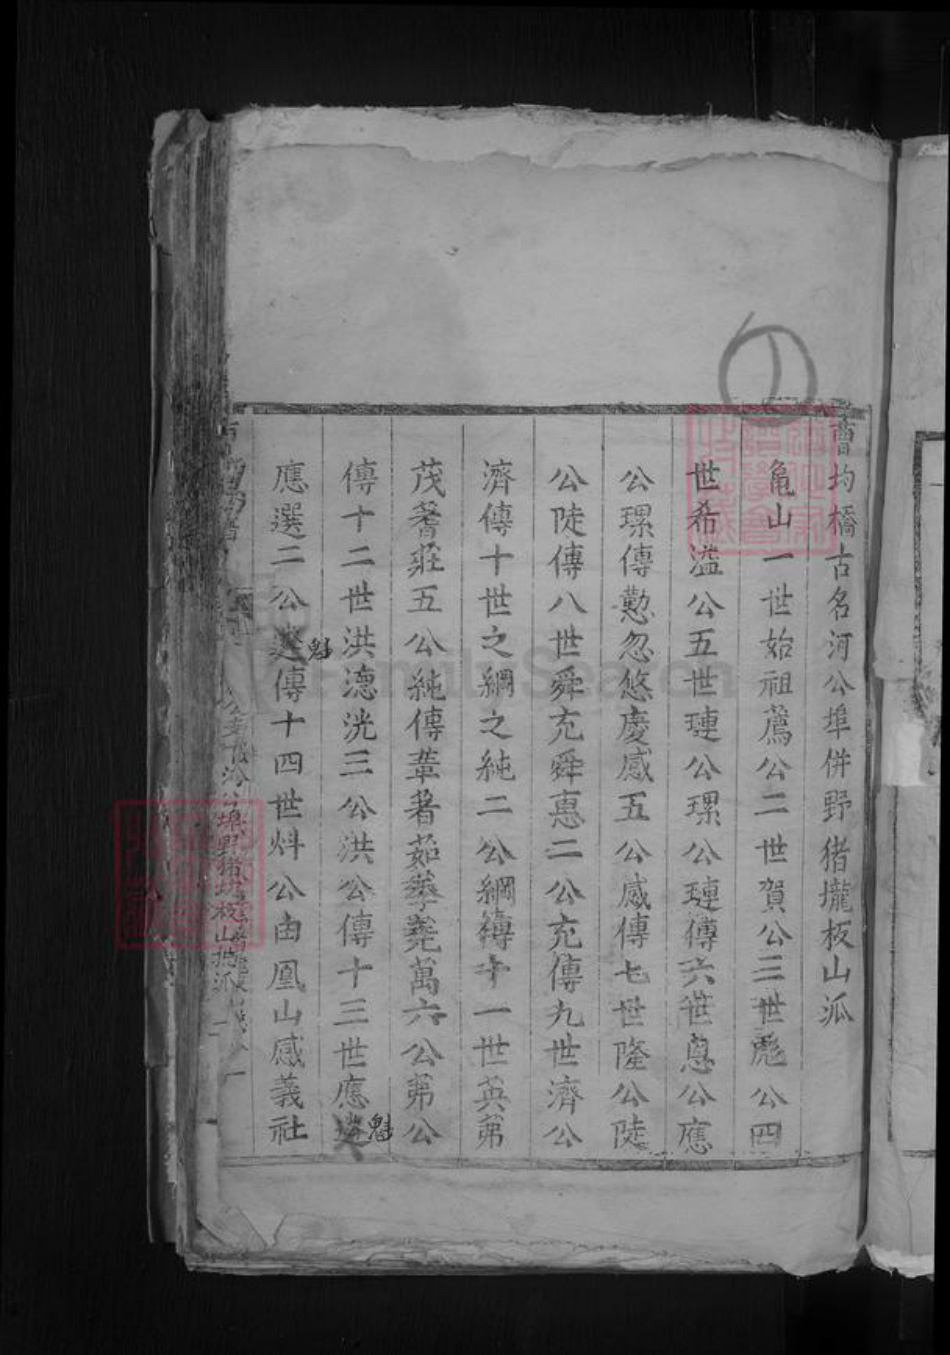 ①
舊均橋古名河公埠併野猪壠板山派
龟山一世始祖薦公二世賀公三世彪公四
世希溢公五世璉公瑮公璉傳六世懃公應
公瑮傳懃忽悠慶感五公感傳七世隆公陡
公陡傳八世舜充舜惠二公充傳九世濟公
濟傳十世之綱之純二公綱傳十一世英茀
茂蓍莊五公純傳葦著茹萬六公茀公
傳十二世洪德洸三公洪公傳十三世應魁
應選二公魁傳十四世炓公由凰山感義社
FamilySearch